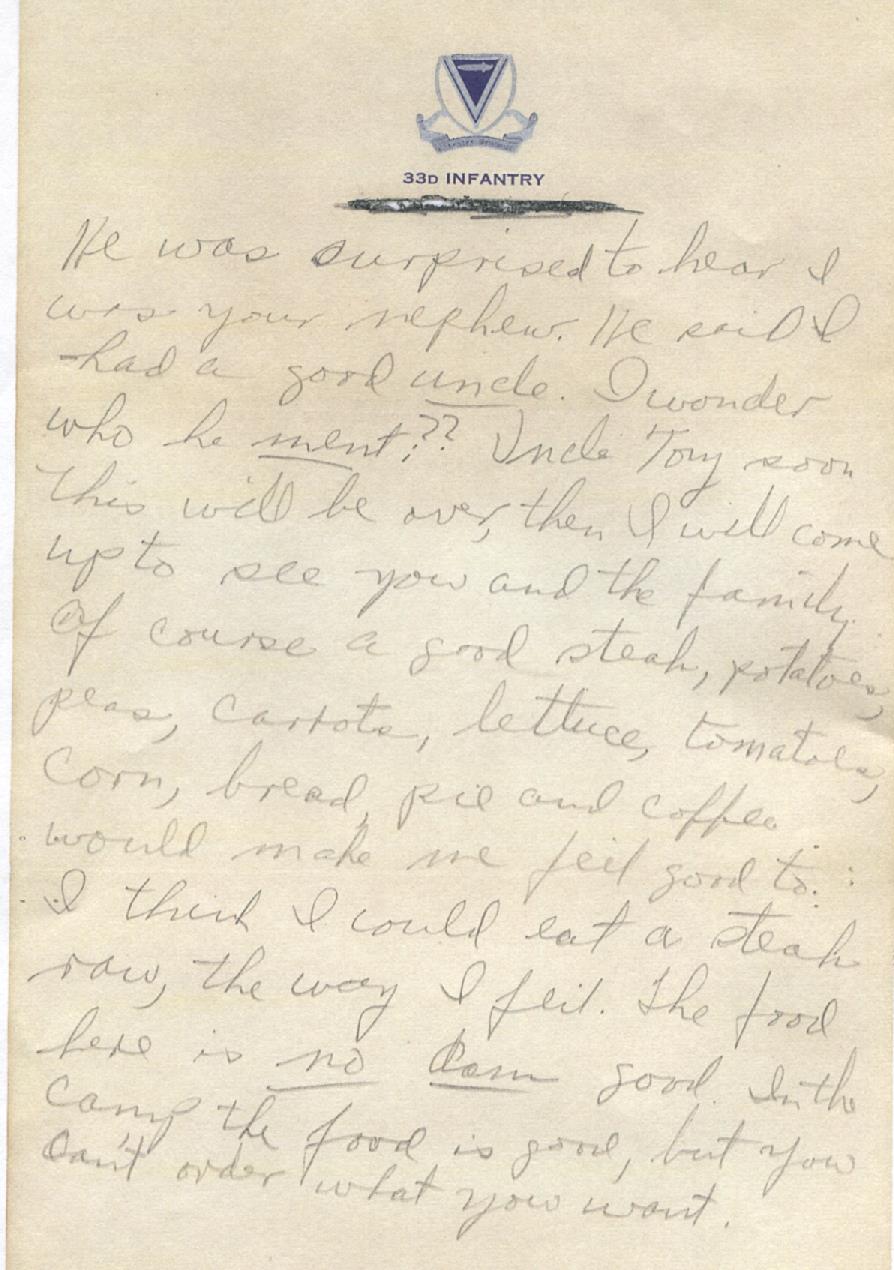 33D INFANTRY
He was surprised to hear I
was your nephew. He said I
had a good uncle. I wonder
who he ment?? Uncle Tony soon
this will be over, then I will come
up to see you and the family.
Of course a good steak, potatoes,
peas, carrots, lettuce, tomatoes,
corn, bread, pie and coffee
would make me feil good to.
I think I could eat a steak
raw, the way I feil. The food
here is no dam good. In the
camp the food is good, but you
can't order what you want.